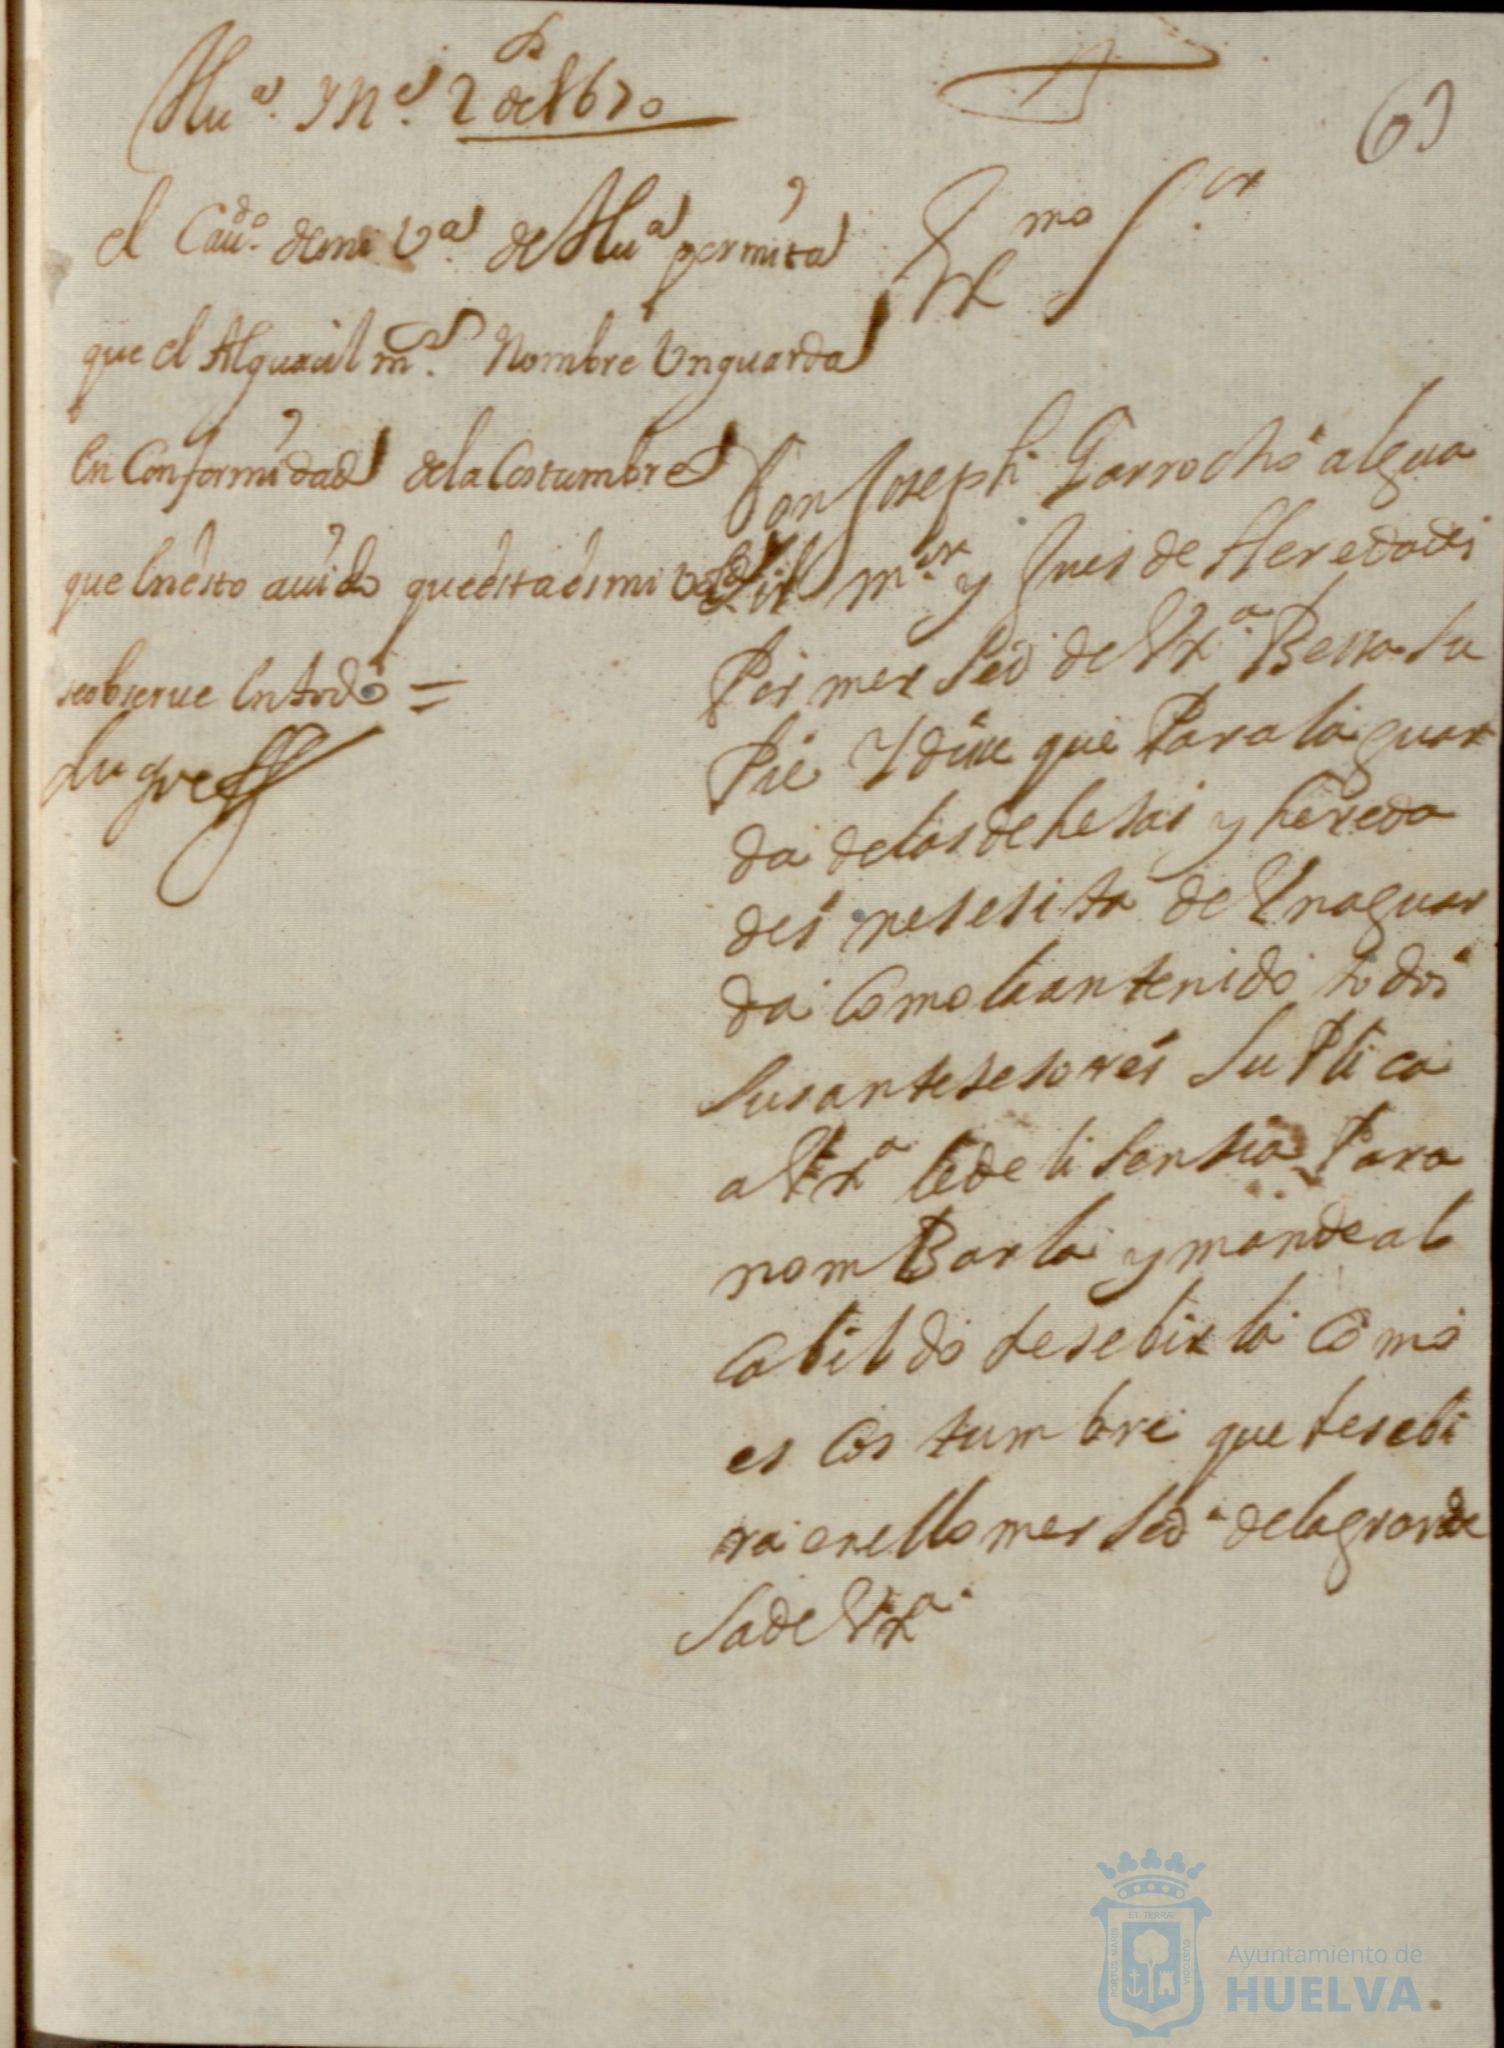 Hua. y No. 2 de 1670
el Cauo. demi Va. de Hua permita
que el Alguacil mr. Nombre Unguarda
En Conformidad dela Costumbre
que Enesto auido que esta es mi Vold
seobserue Entodo =
63
Exmo Sor
Don Joseph Garrocho algua
Sil mor y Jues de Heredades
Por mersed de Vxa. Bessa su
Pie Y dise que Para la guar
da delas dehesas y hereda
des nesesita de Una guar
da Como la an tenido todos
sus antesesores suPlica
a Vxa le de lisensia Para
nomBarla y mande al
cabildo resebirla Como
es Costumbre que resebi
ra en ello mersed dela grande
sa de Vxa.
PORTUS MARIS
ET TERRAE
CUSTODIA
Ayuntamiento de
HUELVA